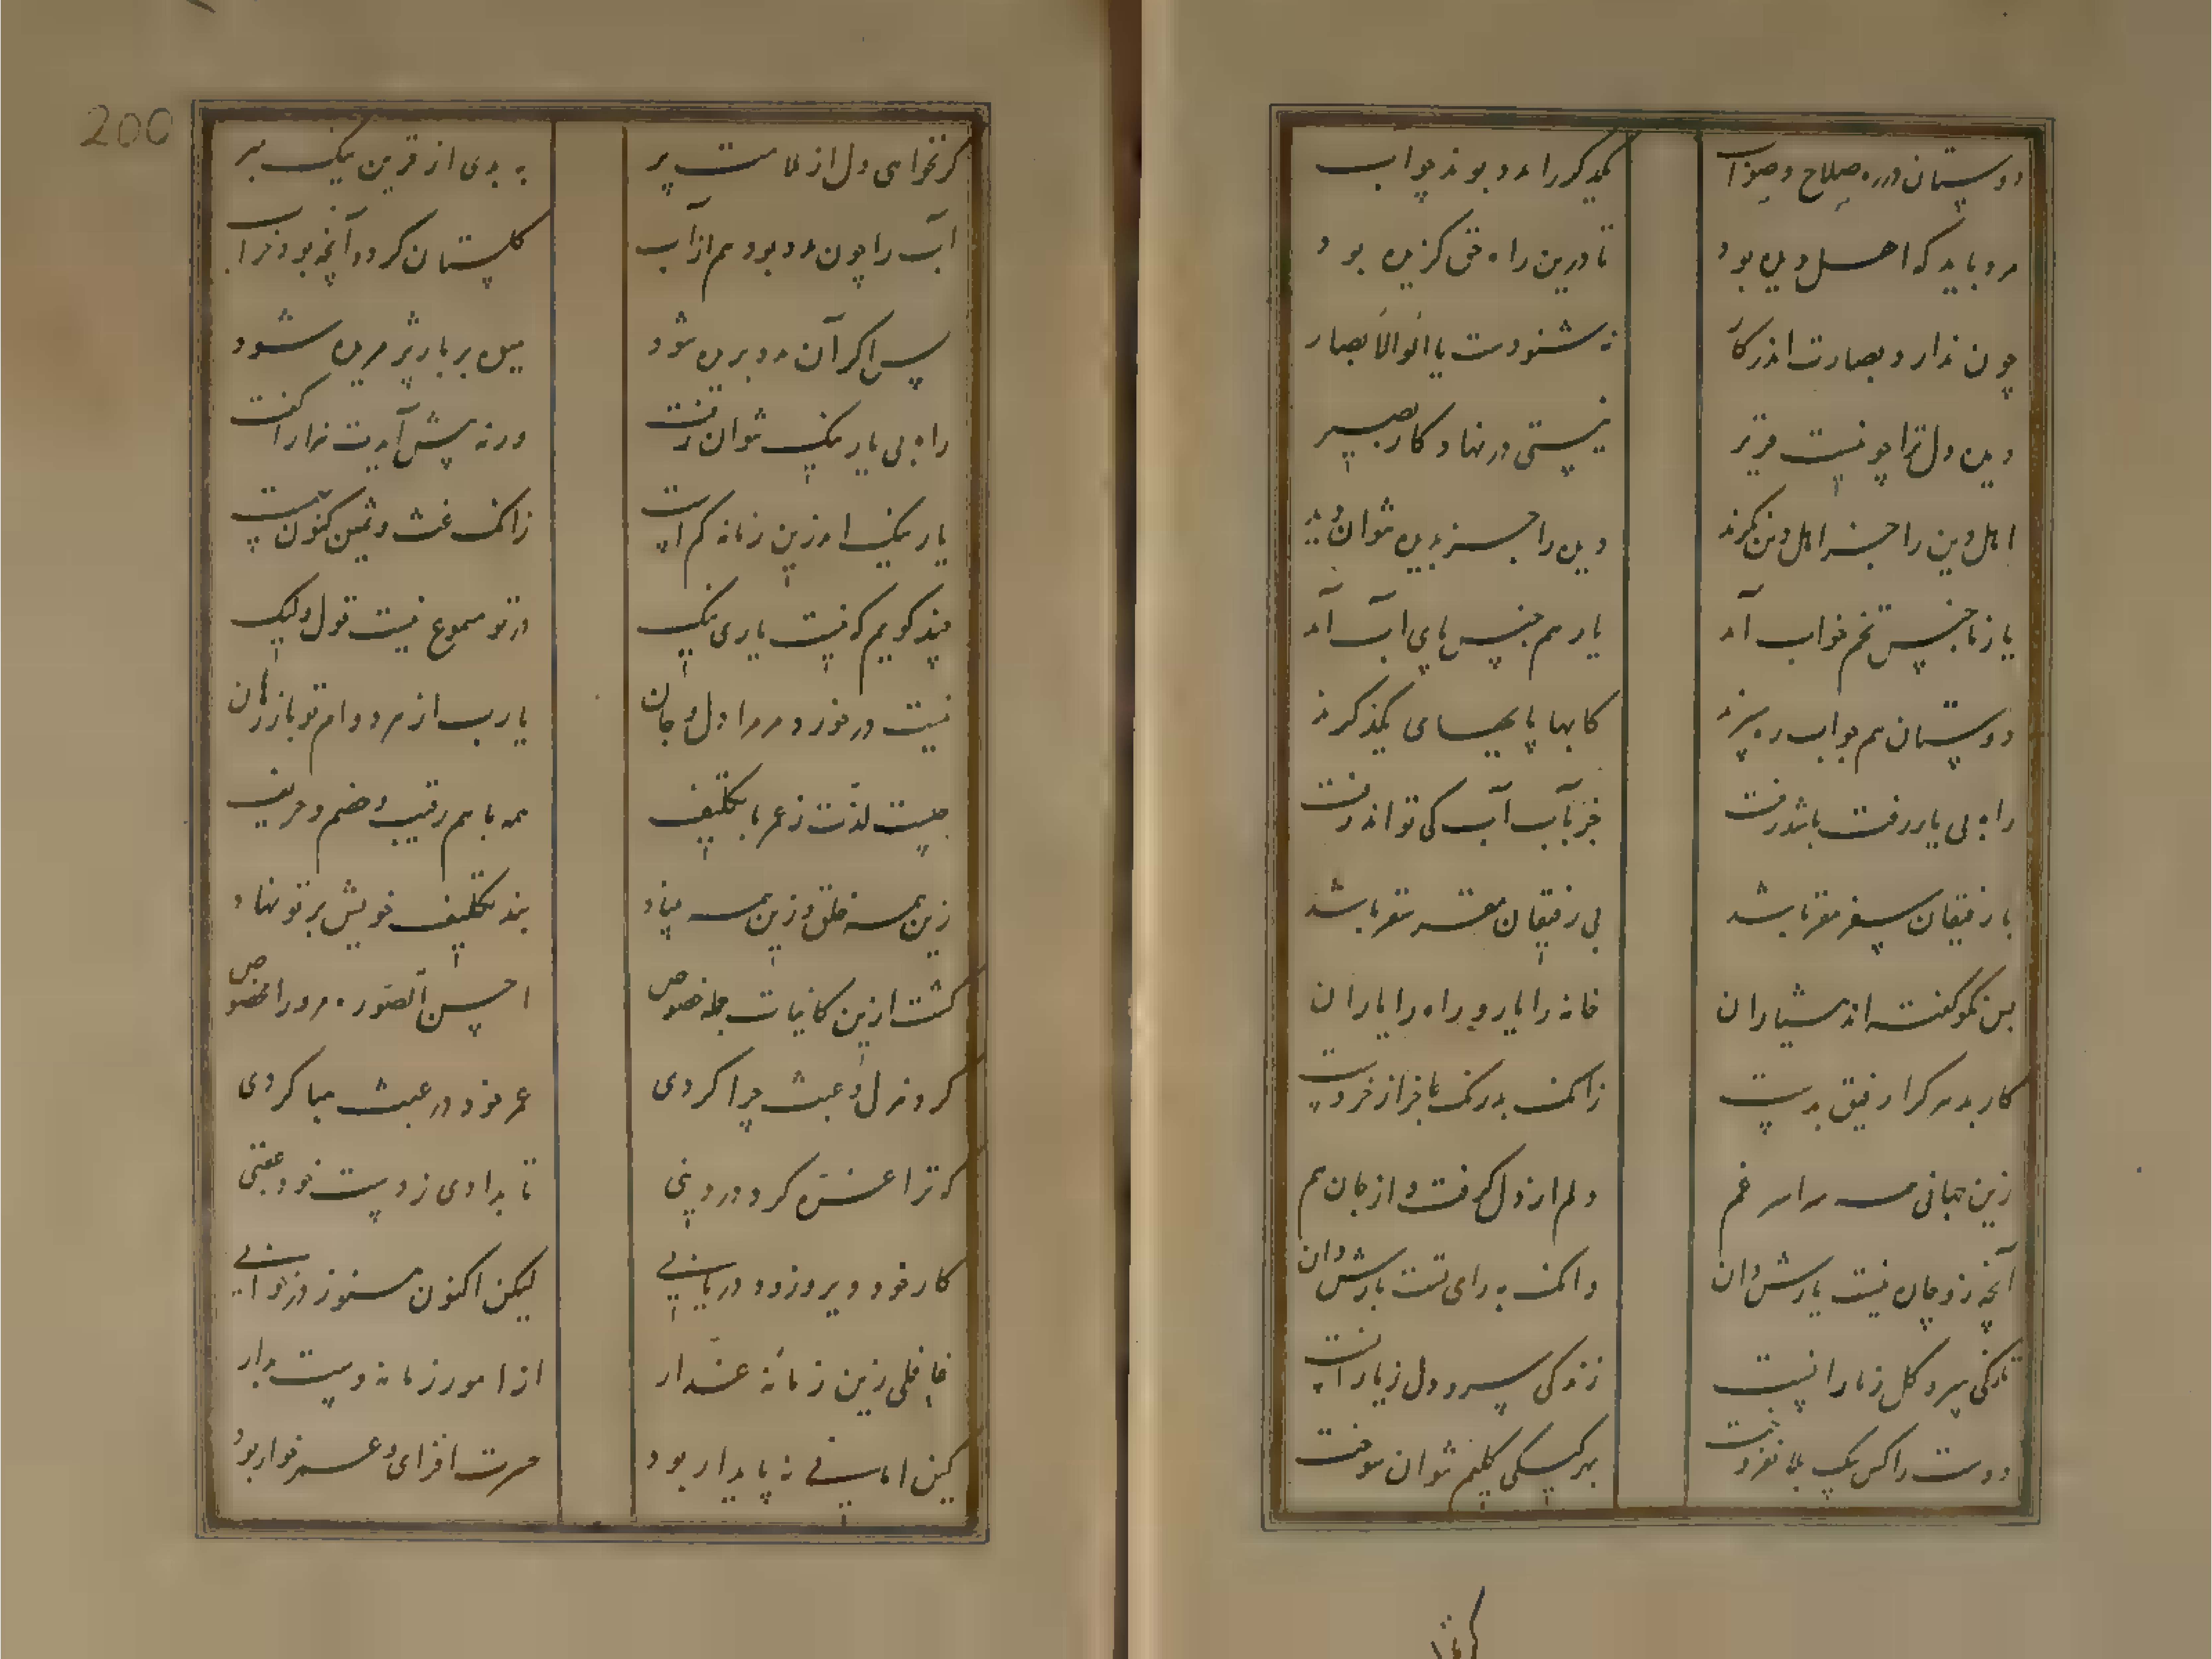 دوستان در ره صلاح و صواب یکدگر را مدد بوند چو آب
مرد باید که اهل دین بود تا درین راه حق گزین بود
چون ندارد بصارت اندر کار نه شنودست یا اولوالابصار
دیده دل ترا چو نیست قریر نیستی در نهاد کار بصیر
اهل دین را جز اهل دین نکرند دیده را جز بدیده توان
یار ناجنس تخم خواب آمد یار هم جنس پای آب آمد
دوستان هم جو آب ره سپرند کابها پایهای یکدگرند
راه بی یار زفت باشد زفت جز بآب آب کی تواند رفت
با رفیقان سفر مقر باشد بی رفیقان سقر باشد
بس نکو گفته اند هشیاران خانه را یار و راه را یاران
کار بد مر کرا رفیق بدست زانک بد رنک با خر از خردست
زین جهانی همه سراسر غم دلم از دل گرفت و از جان هم
آنچه زو چاره نیست یارش دان وانک به رای تست بارش دان
تازگی سرو گل ز بارانست زندگی سر و دل ز یارانست
دوست را کس بیک بلا نفروخت بهر کیکی گلیم نتوان سوخت
گر نخواهی
گر نخواهی دل از ملامت پر به بدی از قرین نیک مبر
آب را چون مدد بود هم از آب گلستان گردد آنچه بود خراب
پس اگر آن مدد بریده شود میوه بر بار پژمریده شود
راه بی یار نیک نتوان رفت ورنه پیش آیدت هزار آگفت
یار نیک اندرین زمانه کم است زانک غث و ثمین کنون است
چند گویم که نیست یاری نیک در تو مسموع نیست قول ولیک
نیست در خورد مر مرا دل و جان یارب از مرد و ام تو باز رهان
چیست لذت ز عمر با تکلیف همه با هم رقیب و خصم و حریف
زین همه خلق و زین همه بنیاد بند تکلیف خویش بر تو نهاد
گشت ازین کاینات جمله خصوص احسن الصوره مرد را مخصوص
گرد هزل و عبث چرا گردی عمر خود در عبث هبا کردی
که ترا غره کرد در دنیی تا بدادی ز دست خود عقبی
کار خود دیر و زود دریابی لیکن اکنون هنوز در خوابی
غافلی زین زمانه غدار از امور زمانه دست بدار
کین امانی نه پایدار بود حسرت افزای و عمر خوار بود
200